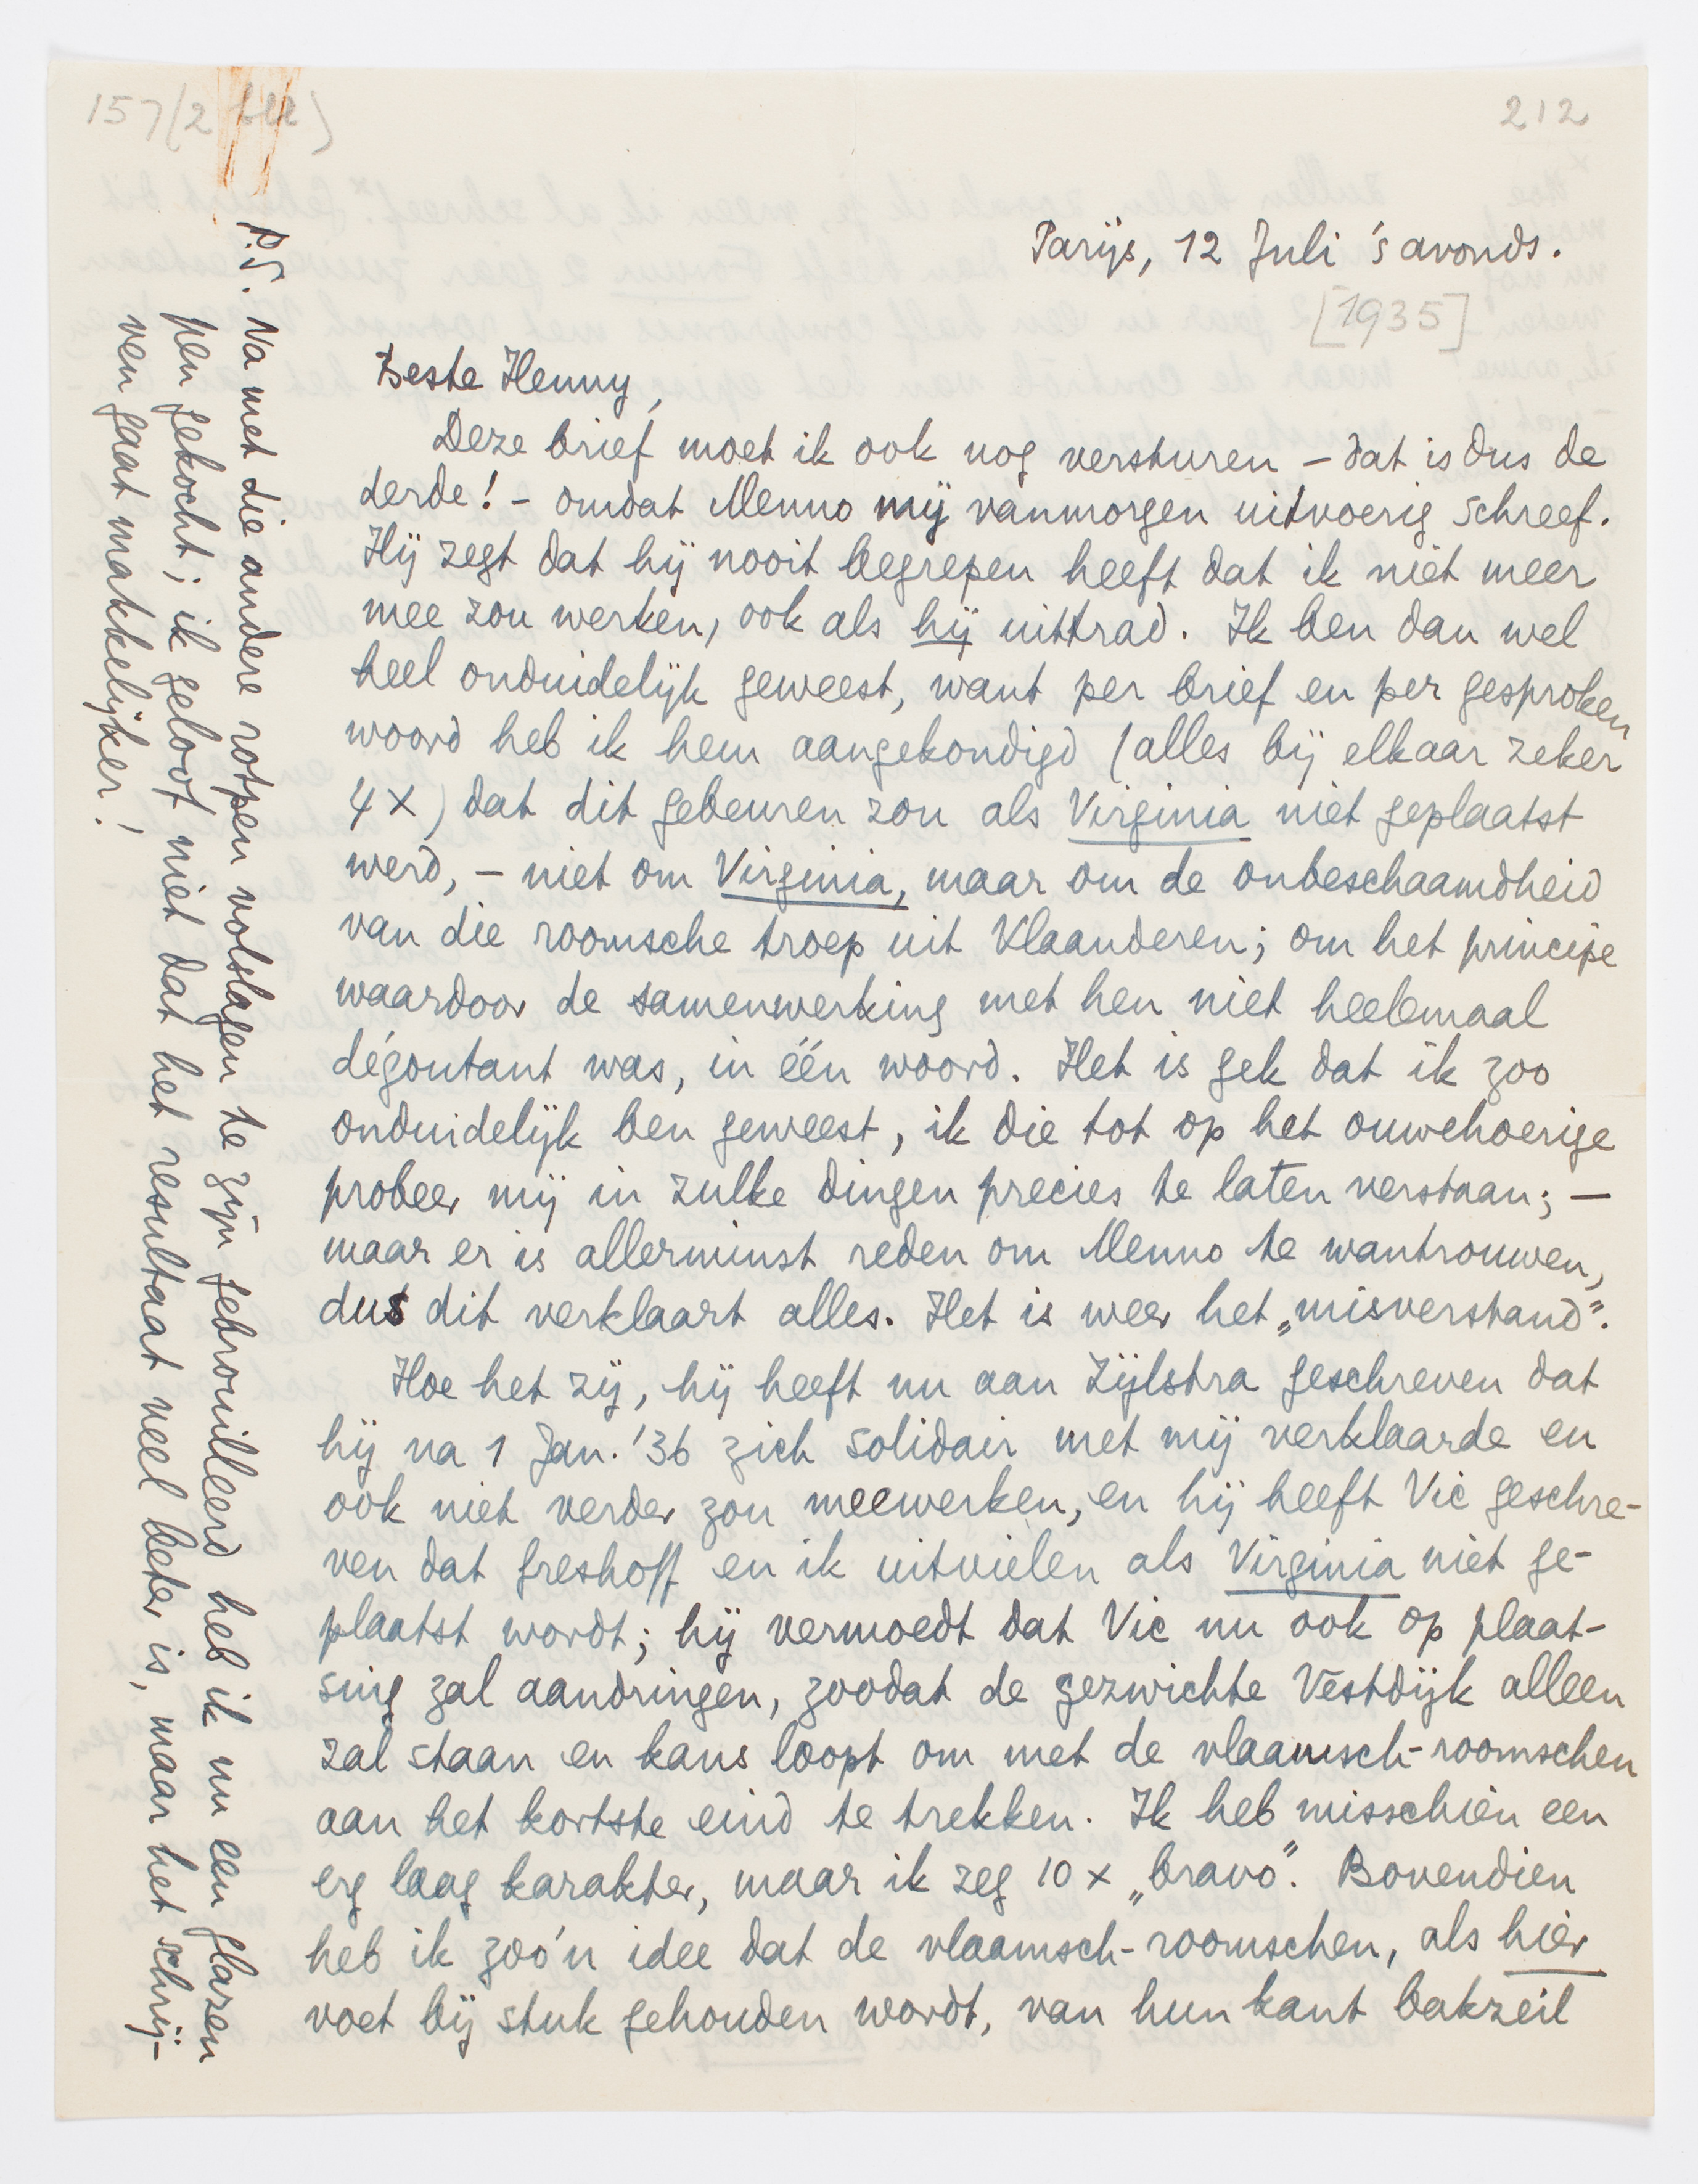 157 (2 bll)
212
Parijs, 12 Juli 's avonds.
[1935]
Beste Henny,
Deze brief moet ik ook nog versturen – dat is dus de
derde! – omdat Menno mij vanmorgen uitvoerig schreef.
Hij zegt dat hij nooit begrepen heeft dat ik niet meer
mee zou werken, ook als hij uittrad. Ik ben dan wel
heel onduidelijk geweest, want per brief en per gesproken
woord heb ik hem aangekondigd (alles bij elkaar zeker
4 x) dat dit gebeuren zou als Virginia niet geplaatst
werd, – niet om Virginia, maar om de onbeschaamdheid
van die roomsche troep uit Vlaanderen; om het principe
waardoor de samenwerking met hen niet heelemaal
dégoutant was, in één woord. Het is gek dat ik zoo
onduidelijk ben geweest, ik die tot op het ouwehoerige
probeer mij in zulke dingen precies te laten verstaan; –
maar er is allerminst reden om Menno te wantrouwen,
dus dit verklaart alles. Het is weer het „misverstand".
Hoe het zij, hij heeft nu aan Zijlstra geschreven dat
hij na 1 Jan. '36 zich solidair met mij verklaarde en
ook niet verder zou meewerken, en hij heeft Vic geschre-
ven dat Greshoff en ik uitvielen als Virginia niet ge-
plaatst wordt; hij vermoedt dat Vic nu ook op plaat-
sing zal aandringen, zoodat de gezwichte Vestdijk alleen
zal staan en kans loopt om met de vlaamsch-roomschen
aan het kortste eind te trekken. Ik heb misschien een
erg laag karakter, maar ik zeg 10 x „bravo". Bovendien
heb ik zoo'n idee dat de vlaamsch-roomschen, als hier
voet bij stuk gehouden wordt, van hun kant bakzeil
P.S. Na met die andere rotpen volslagen te zijn gebrouilleerd heb ik nu een glazen
pen gekocht; ik geloof niet dat het resultaat veel beter is, maar het schrij-
ven gaat makkelijker!